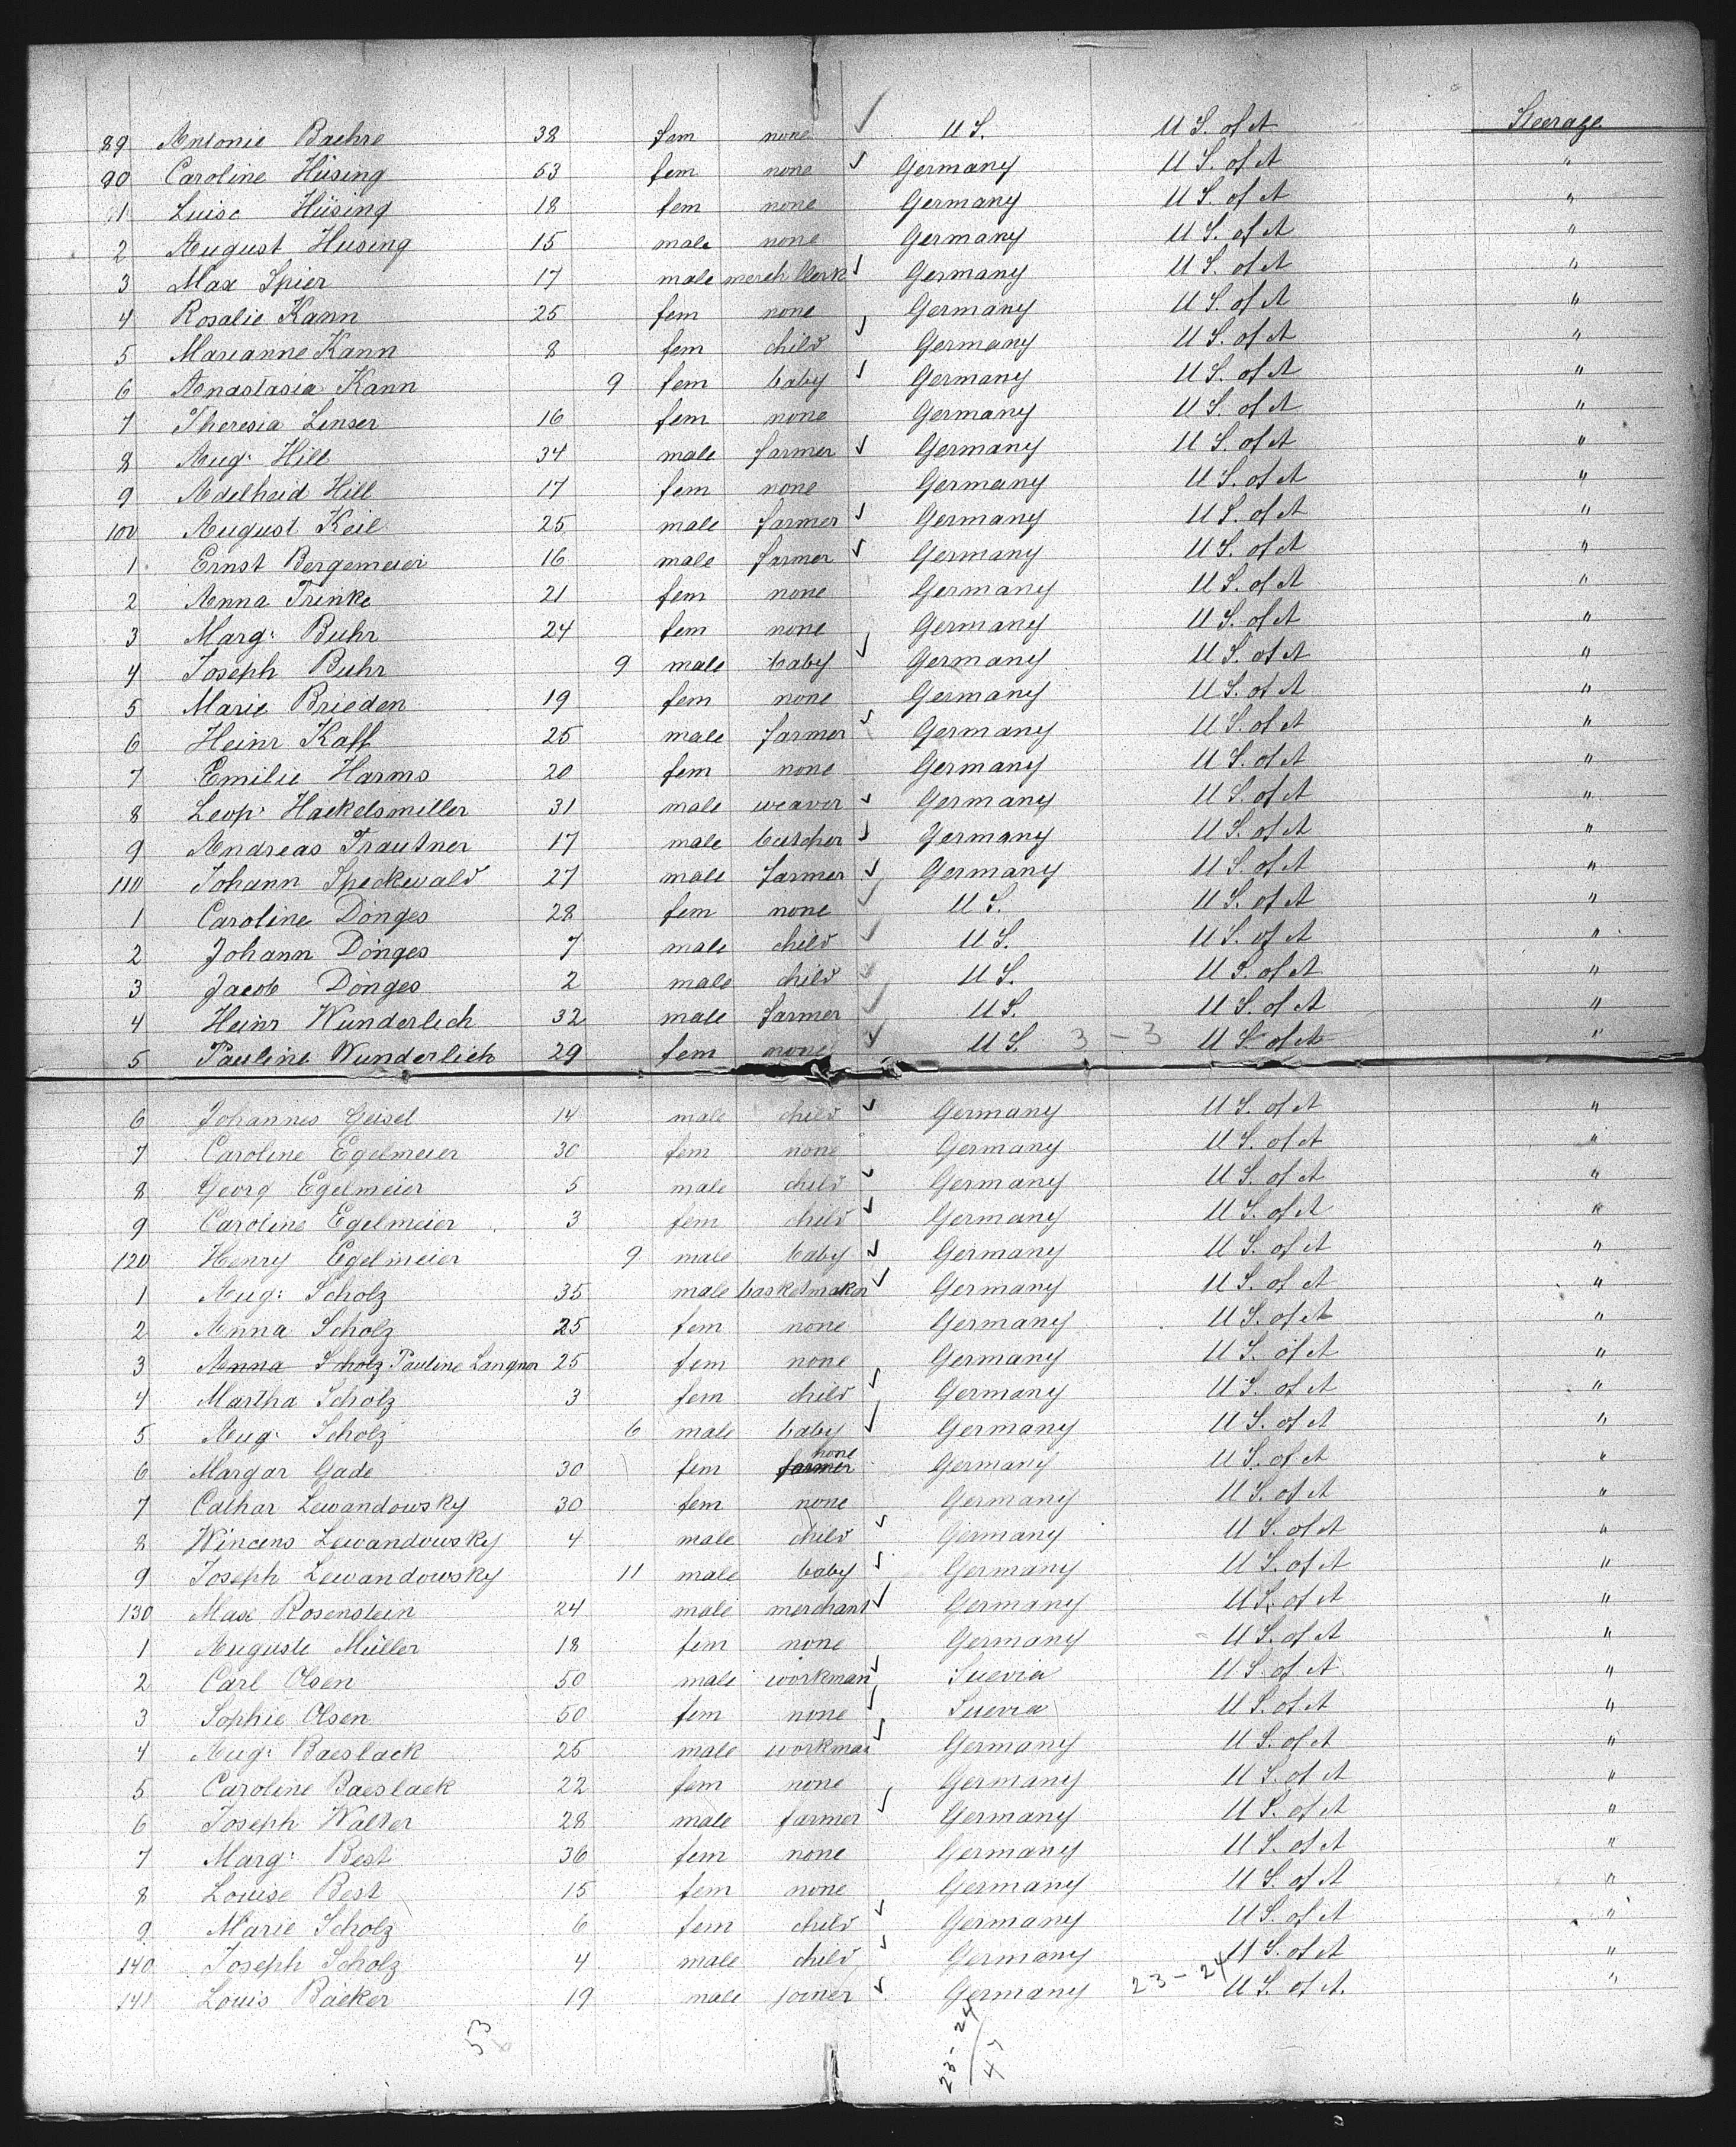 89 Antonie Baehre 38 fem none ✓ U S. U S. of A Steerage
90 Caroline Hüsing 53 fem none ✓ Germany U S. of A "
91 Luise Hüsing 18 fem none Germany U S. of A "
2 August Hüsing 15 male none Germany U S. of A "
3 Max Spier 17 male merch Clerk ✓ Germany U S. of A "
4 Rosalie Kann 25 fem none Germany U S. of A "
5 Marianne Kann 8 fem child ✓ Germany U S. of A "
6 Anastasia Kann 9 fem baby ✓ Germany U S. of A "
7 Theresia Linser 16 fem none Germany U S. of A "
8 Aug: Hill 34 male farmer ✓ Germany U S. of A "
9 Adelheid Hill 17 fem none Germany U S. of A "
100 August Keil 25 male farmer ✓ Germany U S. of A "
1 Ernst Bergemeier 16 male farmer ✓ Germany U S. of A "
2 Anna Trinke 21 fem none Germany U S. of A "
3 Marg: Buhr 24 fem none Germany U S. of A "
4 Joseph Buhr 9 male baby ✓ Germany U S. of A "
5 Marie Brieden 19 fem none Germany U S. of A "
6 Heinr Kalf 25 male farmer ✓ Germany U S. of A "
7 Emilie Harms 20 fem none Germany U S. of A "
8 Leop: Hackelsmiller 31 male weaver ✓ Germany U S. of A "
9 Andreas Trautner 17 male butcher ✓ Germany U S. of A "
110 Johann Speckwald 27 male farmer ✓ Germany U S. of A "
1 Caroline Dönges 28 fem none ✓ U S. U S. of A "
2 Johann Dönges 7 male child ✓ U S. U S. of A "
3 Jacob Dönges 2 male child ✓ U S. U S. of A "
4 Heinr Wunderlich 32 male farmer ✓ U S. U S. of A "
5 Pauline Wunderlich 29 fem none ✓ U S. 3 - 3 U S of A "
6 Johannes Geisel 14 male child ✓ Germany U S. of A "
7 Caroline Egelmeier 30 fem none Germany U S. of A "
8 Georg Egelmeier 5 male child ✓ Germany U S. of A "
9 Caroline Egelmeier 3 fem child ✓ Germany U S. of A "
120 Henry Egelmeier 9 male baby ✓ Germany U S. of A "
1 Aug: Scholz 35 male basketmaker ✓ Germany U S. of A "
2 Anna Scholz 25 fem none Germany U S. of A "
3 Anna Scholz Pauline Langner 25 fem none Germany U S. of A "
4 Martha Scholz 3 fem child ✓ Germany U S. of A "
5 Aug: Scholz 6 male baby ✓ Germany U S. of A "
6 Margar Gade 30 fem farmer none Germany U S. of A "
7 Cathar Lewandowsky 30 fem none Germany U S. of A "
8 Wincens Lewandowsky 4 male child ✓ Germany U S. of A "
9 Joseph Lewandowsky 11 male baby ✓ Germany U S. of A "
130 Max Rosenstein 24 male merchant ✓ Germany U S. of A "
1 Auguste Müller 18 fem none Germany U S. of A "
2 Carl Olsen 50 male workman ✓ Suevia U S. of A "
3 Sophie Olsen 50 fem none ✓ Suevia U S. of A "
4 Aug: Baeslack 25 male workman ✓ Germany U S. of A "
5 Caroline Baeslack 22 fem none Germany U S. of A "
6 Joseph Walter 28 male farmer ✓ Germany U S. of A "
7 Marg: Best 36 fem none Germany U S. of A "
8 Louise Best 15 fem none Germany U S. of A "
9 Marie Scholz 6 fem child ✓ Germany U S. of A "
140 Joseph Scholz 4 male child ✓ Germany U S. of A "
141 Louis Bäcker 19 male joiner ✓ Germany 23 - 24 U S. of A. "
53 23 - 24 / 47